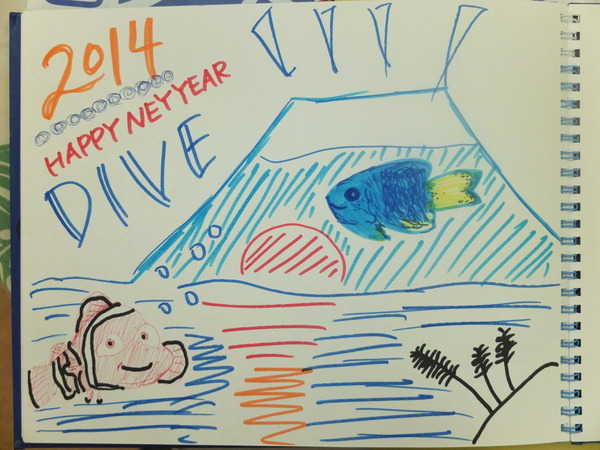 2014
HAPPY NEYYEAR
DIVE!!!!